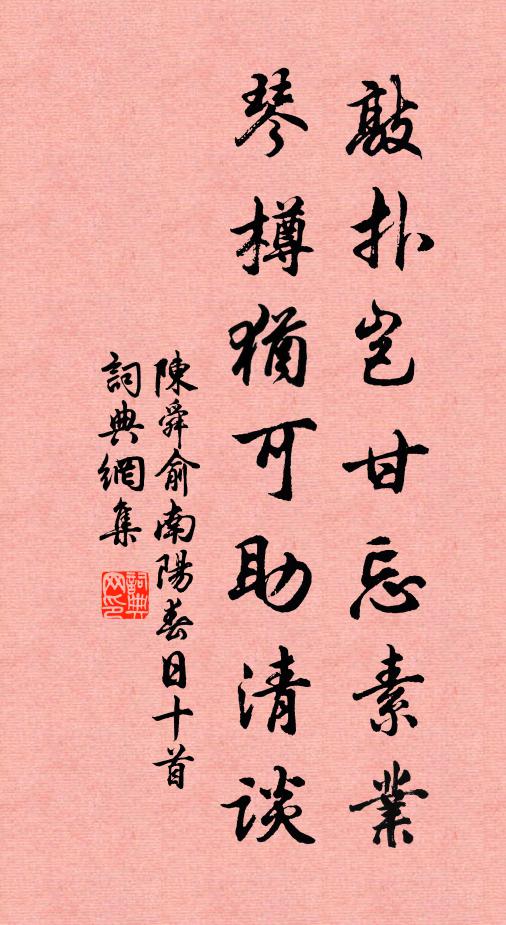 敲扑岂甘忘素業
琴樽猶可助清談
陳舜俞南陽春日十首
詞典網集
詞典
网印